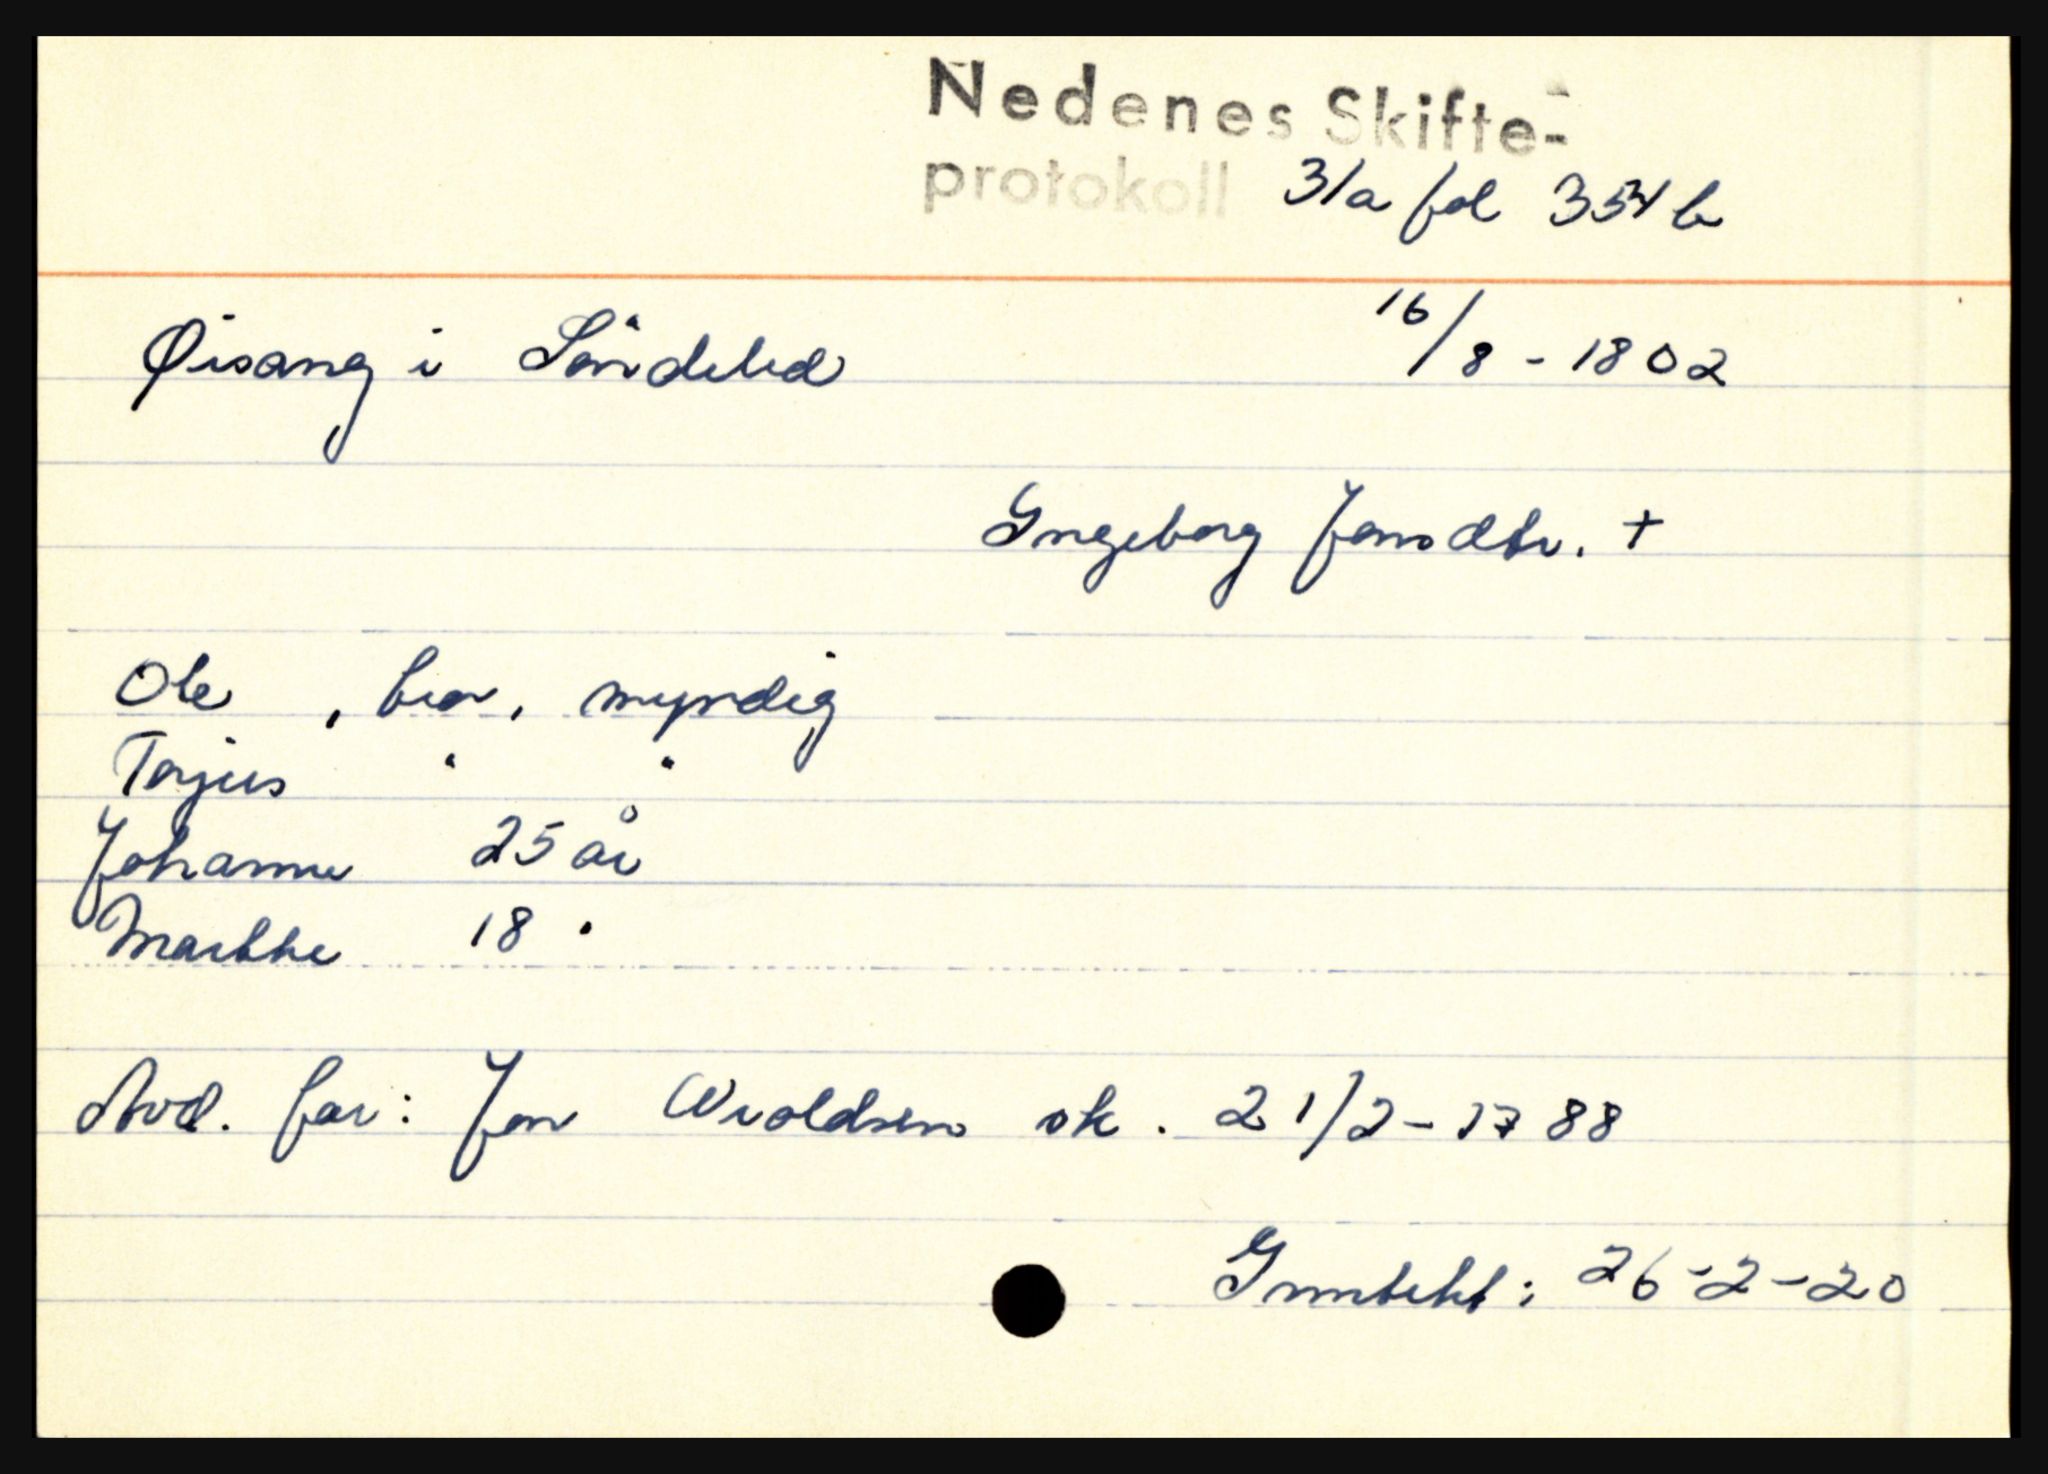 Nedenes Skifte-
protokoll 31a fol 354 b
Øisang i Söndeled 16/8 - 1802
Ingeborg Jonsdtr. +
Ole , bror, myndig
Torjus " "
Johanne 25 år
Marthe 18 "
Avd. far: Jon Wroldsen sk. 21/2-1788
Inntekt: 26-2-20